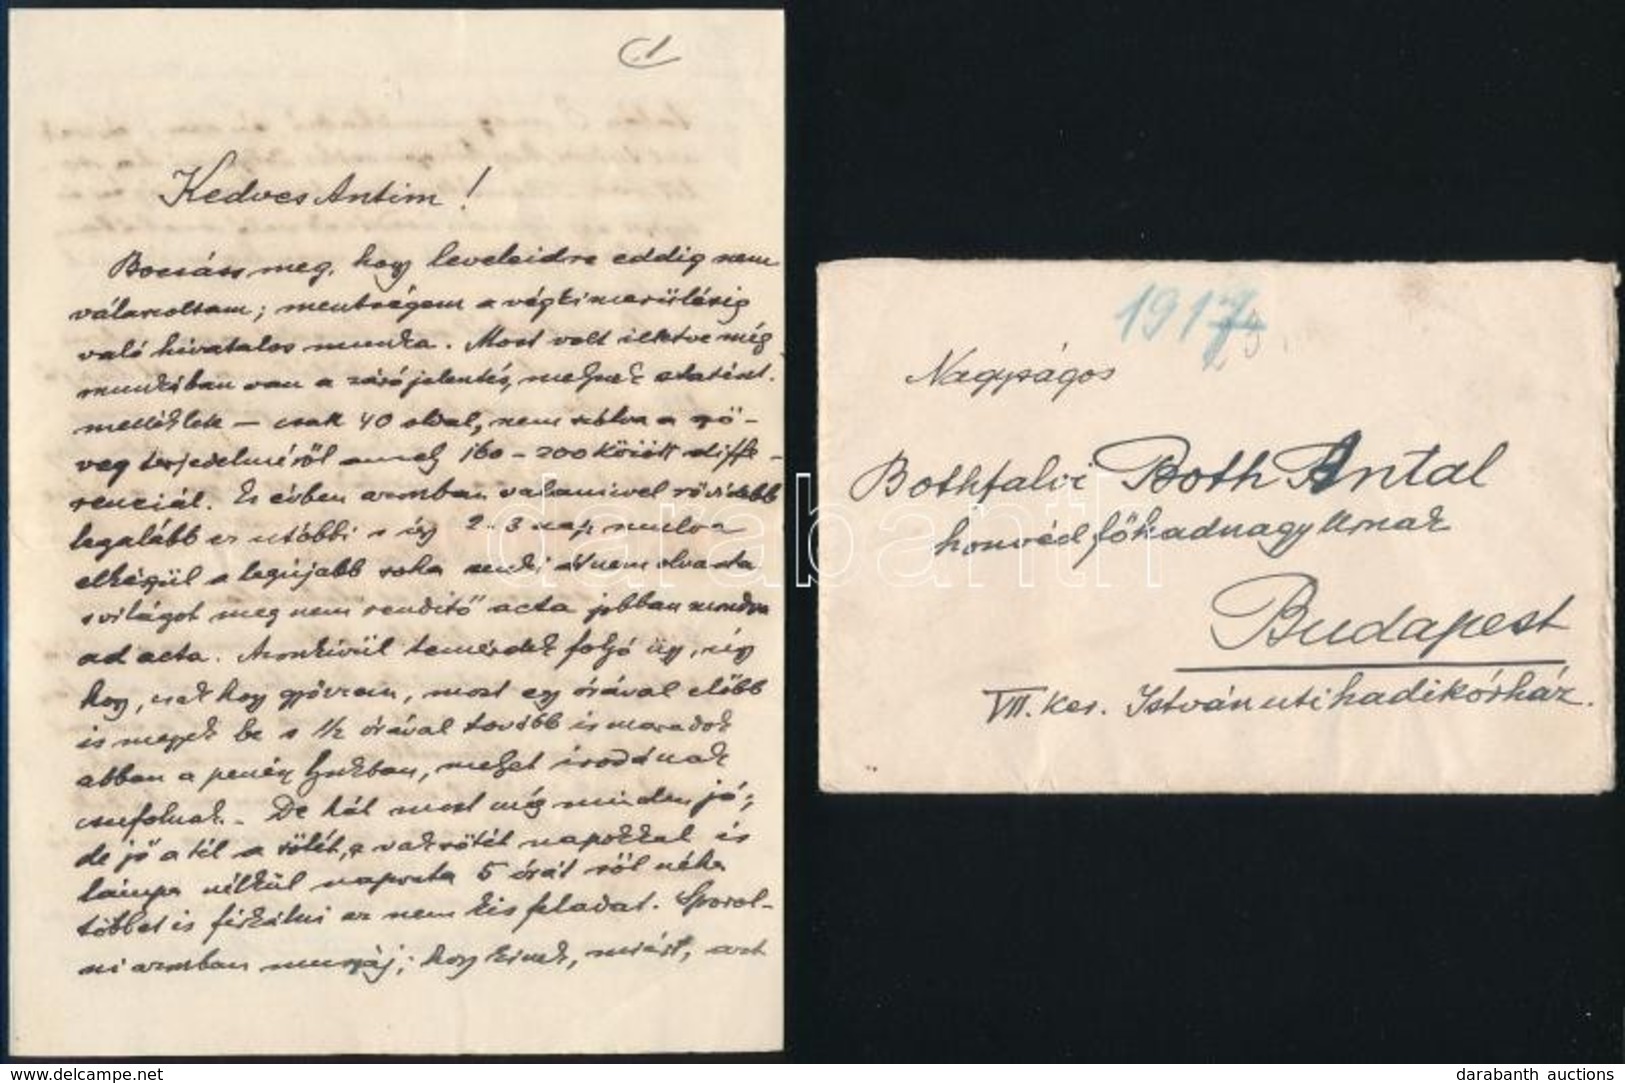 1
Kedves Antim!
Bocsáss meg, hogy leveleidre eddig nem
válaszoltam; mentségem a végkimerülésig
való hivatalos munka. Most volt illetve még
munkában van a zárójelentés, melynek statiszt.
melléklete – csak 40 oldal, nem szólva a szö-
veg terjedelméről amely 160–200 között diffe-
renciál. Ez évben azonban valamivel rövidebb
legalább ez utóbbi s így 2–3 nap mulva
elkészül a legújabb soha senki át nem olvasta
s világot meg nem rendítő acta jobban mondva
ad acta. Azonkívül temérdek folyó ügy, úgy
hogy, csak hogy győzzem, most egy órával előbb
is megyek be s 1/2 órával tovább is maradok
abban a penész lyukban, melyet irodának
csufolnak. – De hát most még minden jó;
de jő a tél a sötét, s vaksötét napokkal és
lámpa nélkül naponta 5 órát sőt néha
többet is firkálni az nem kis feladat. Sporol-
ni azonban muszáj; hogy kinek, miért, azt
1917
Nagyságos
Bothfalvi Both Antal
honvéd főhadnagy Urnak
Budapest
VII. ker. István uti hadikórház.
darabanth
www.delcampe.net
darabanth auctions